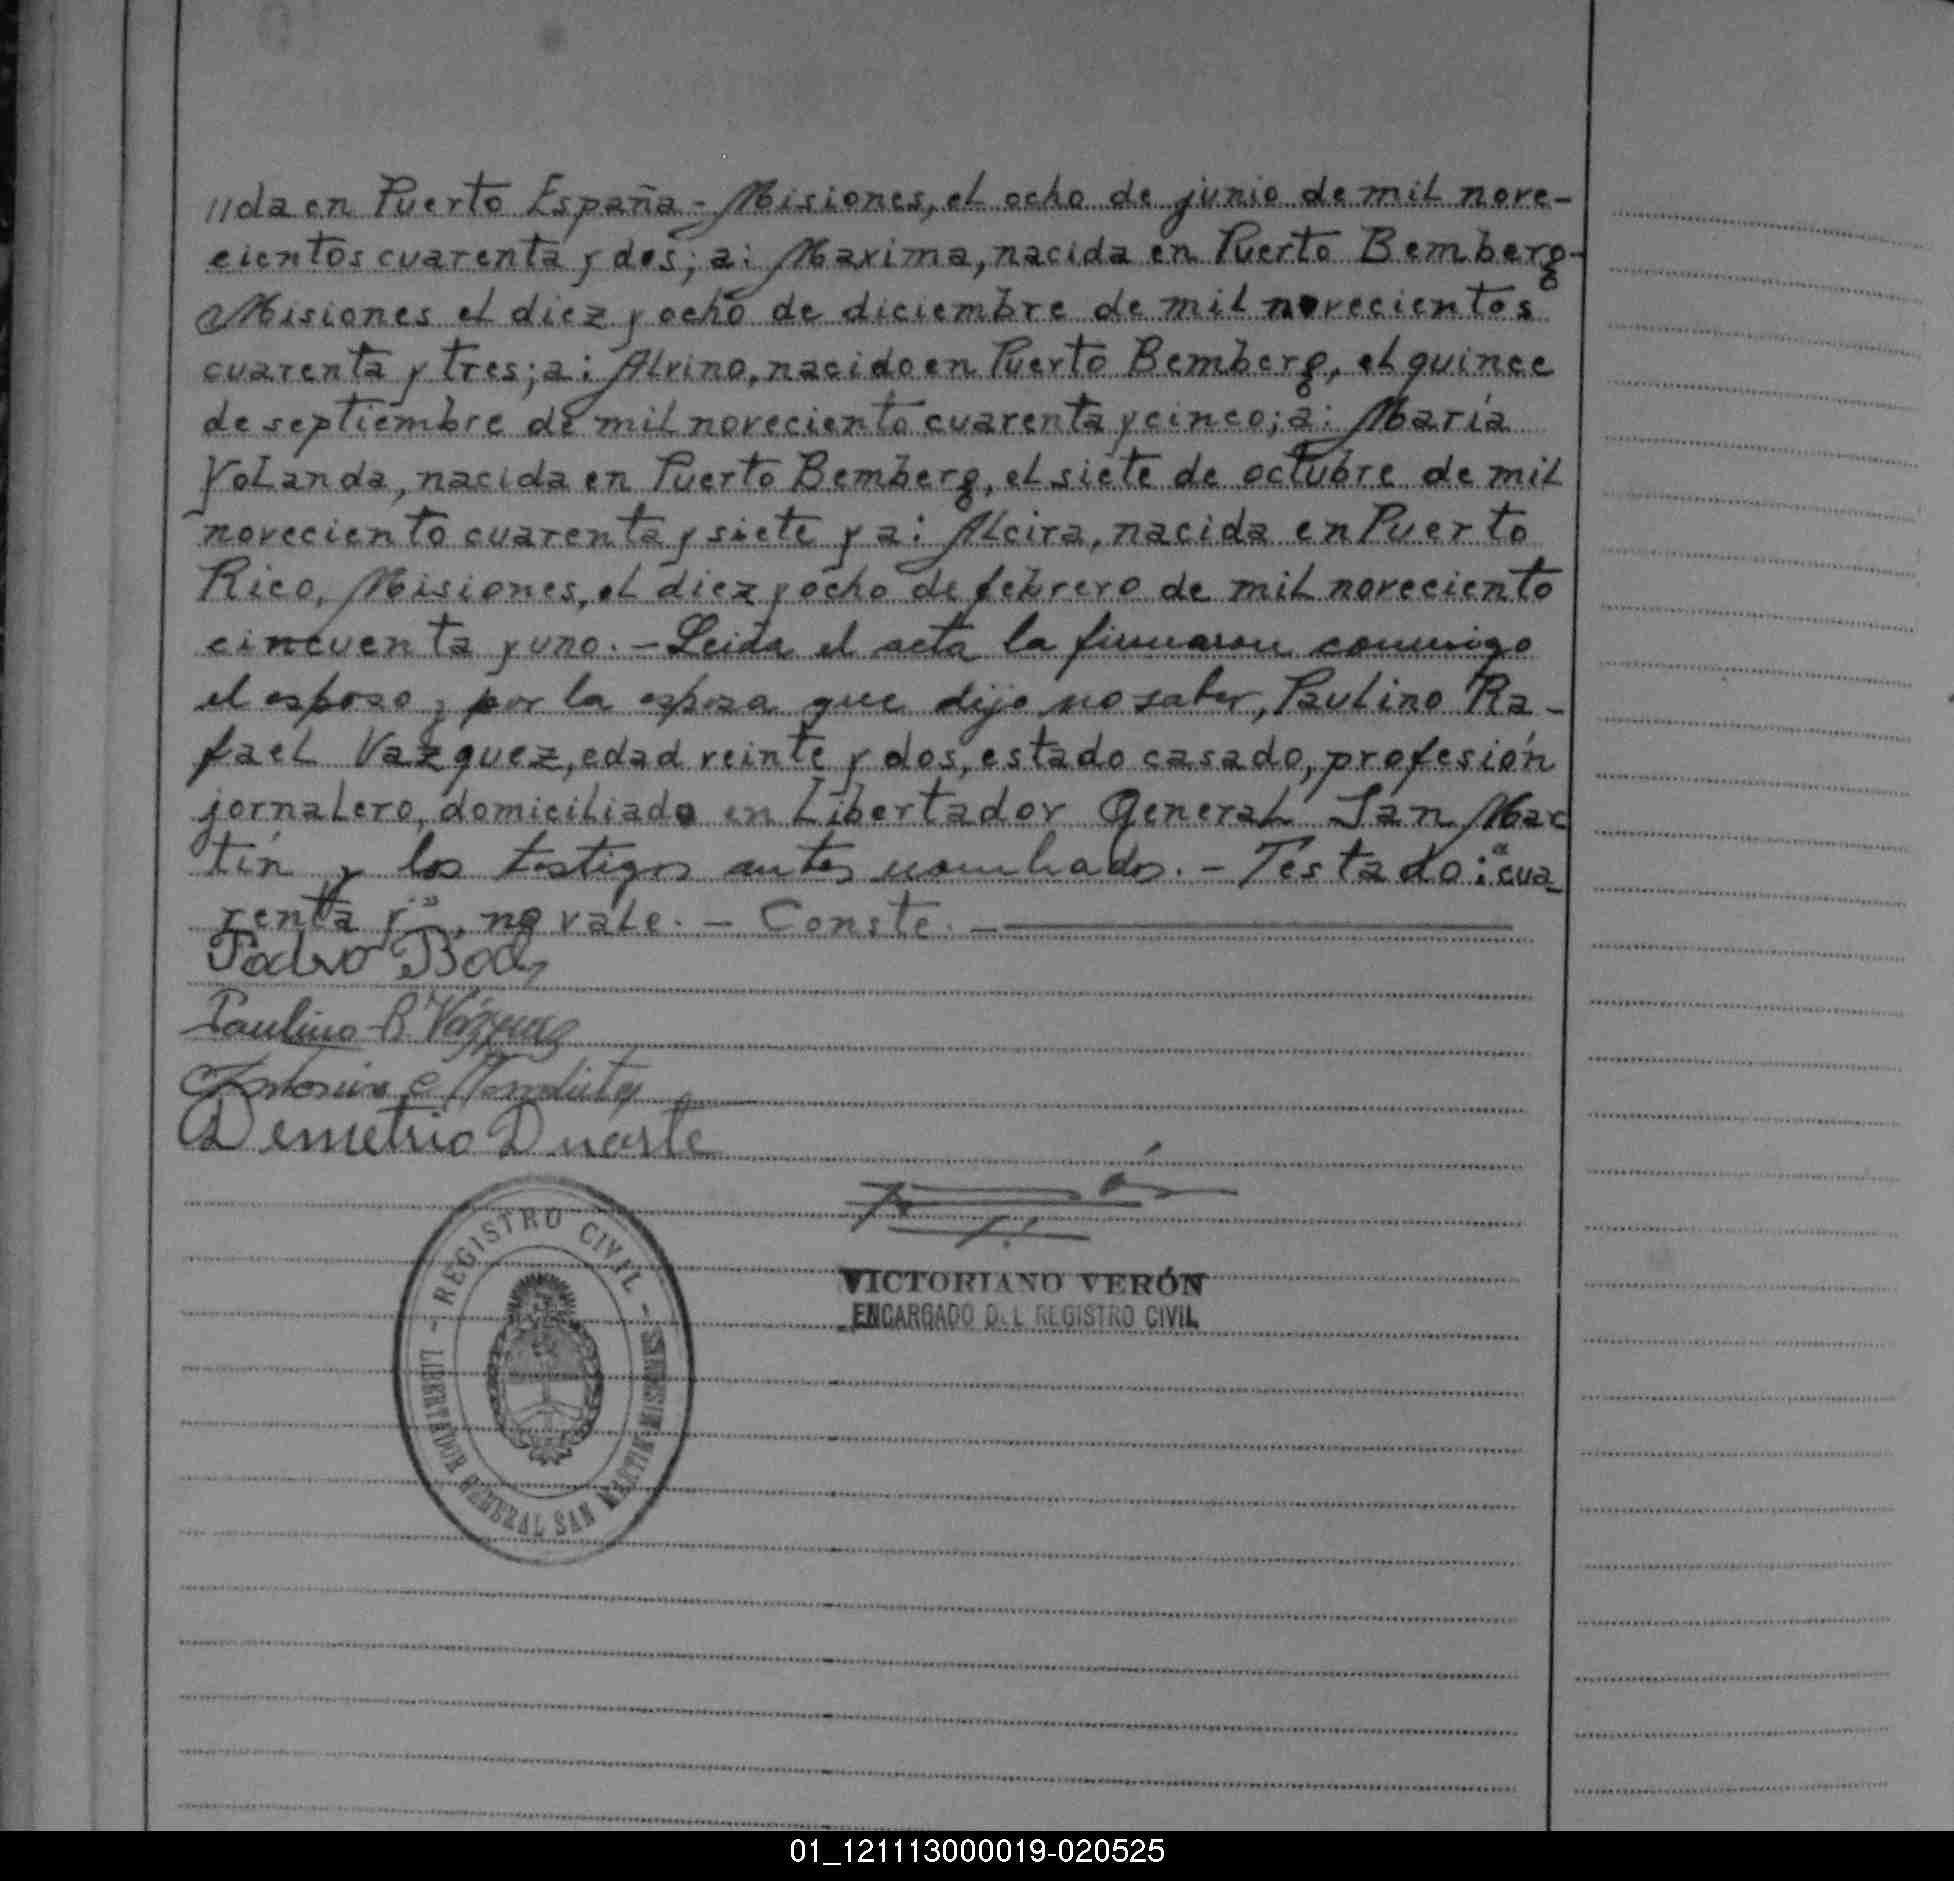 //da en Puerto España - Misiones, el ocho de junio de mil nove-
cientos cuarenta y dos; a: Maxima, nacida en Puerto Bemberg-
Misiones el diez y ocho de diciembre de mil novecientos
cuarenta y tres; a: Alvino, nacido en Puerto Bemberg, el quince
de septiembre de mil noveciento cuarenta y cinco; a: María
Yolanda, nacida en Puerto Bemberg, el siete de octubre de mil
noveciento cuarenta y siete y a: Alcira, nacida en Puerto
Rico, Misiones, el diez y ocho de febrero de mil noveciento
cincuenta y uno. - Leida el acta la firmaron conmigo
el esposo y por la esposa que dijo no saber, Paulino Ra-
fael Vazquez, edad veinte y dos, estado casado, profesión
jornalero, domiciliado en Libertador General San Mar
tín y los testigos antes nombrados. - Testado: "cua
renta y", no vale. - Conste. -
Pedro
Paulino R. Vázquez
Demetrio Duarte
VICTORIANO VERÓN
ENCARGADO DEL REGISTRO CIVIL
- REGISTRO CIVIL -
LIBERTADOR GENERAL SAN MARTIN-MISIONES
01_121113000019-020525